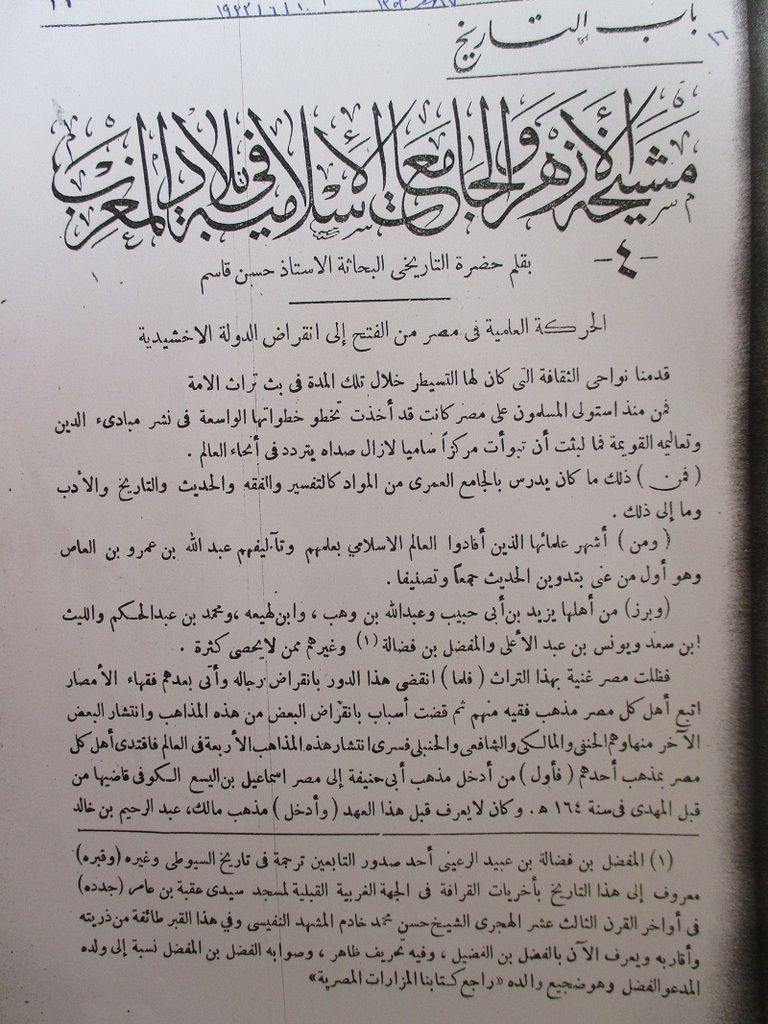 باب التاريخ
١٦
مشيخة الأزهر والجامعات الأسلامية في بلاد المغرب
- ٤ -
بقلم حضرة التاريخى البحاثة الاستاذ حسن قاسم
الحركة العامية فى مصر من الفتح إلى انقراض الدولة الاخشيدية
قدمنا نواحى الثقافة التى كان لها التسيطر خلال تلك المدة فى بث تراث الامة
فمن منذ استولى المسلمون على مصر كانت قد أخذت تخطو خطواتها الواسعة فى نشر مبادىء الدين
وتعاليمه القويمة فما لبثت أن تبوأت مركزاً ساميا لازال صداه يتردد فى أنحاء العالم .
( فمن ) ذلك ما كان يدرس بالجامع العمرى من المواد كالتفسير والفقه والحديث والتاريخ والأدب
وما إلى ذلك .
( ومن ) أشهر علمائها الذين أفادوا العالم الاسلامي بعلمهم وتآليفهم عبد الله بن عمرو بن العاص
وهو أول من عنى بتدوين الحديث جمعاً وتصنيفا .
(وبرز) من أهلها يزيد بن أبى حبيب وعبدالله بن وهب ، وابن لهيعه ،ومحمد بن عبدالحكم والليث
ابن سعد ويونس بن عبد الأعلى والمفضل بن فضالة (١) وغيرهم ممن لايحصى كثرة .
فظلت مصر غنية بهذا التراث ( فلما ) انقضى هذا الدور بانقراض رجاله وأتى بعدهم فقهاء الأمصار
اتبع أهل كل مصر مذهب فقيه منهم ثم قضت أسباب بانقراض البعض من هذه المذاهب وانتشار البعض
الآخر منها وهم الحنفى والمالكى والشافعى والحنبلى فسرى انتشار هذه المذاهب الأربعة فى العالم فاقتدى أهل كل
مصر بمذهب أحدهم ( فأول ) من أدخل مذهب أبى حنيفة إلى مصر اسماعيل بن اليسع الكوفى قاضيها من
قبل المهدى فى سنة ١٦٤ ه . وكان لايعرف قبل هذا العهد ( وأدخل ) مذهب مالك، عبد الرحيم بن خالد
(١) المفضل بن فضالة بن عبيد الرعينى أحد صدور التابعين ترجمة فى تاريخ السيوطى وغيره (وقبره)
معروف إلى هذا التاريخ بأخريات القرافة فى الجهة الغربية القبلية لمسجد سيدى عقبة بن عامر (جدده)
فى أواخر القرن الثالث عشر الهجرى الشيخ حسن محمد خادم المشهد النفيسى وفي هذا القبر طائفة من ذريته
وأقاربه ويعرف الآن بالفضل بن الفضيل ، وفيه تحريف ظاهر ، وصوابه الفضل بن المفضل نسبة إلى ولده
المدعو الفضل وهو ضجيع والده «راجع كتابنا المزارات المصرية»